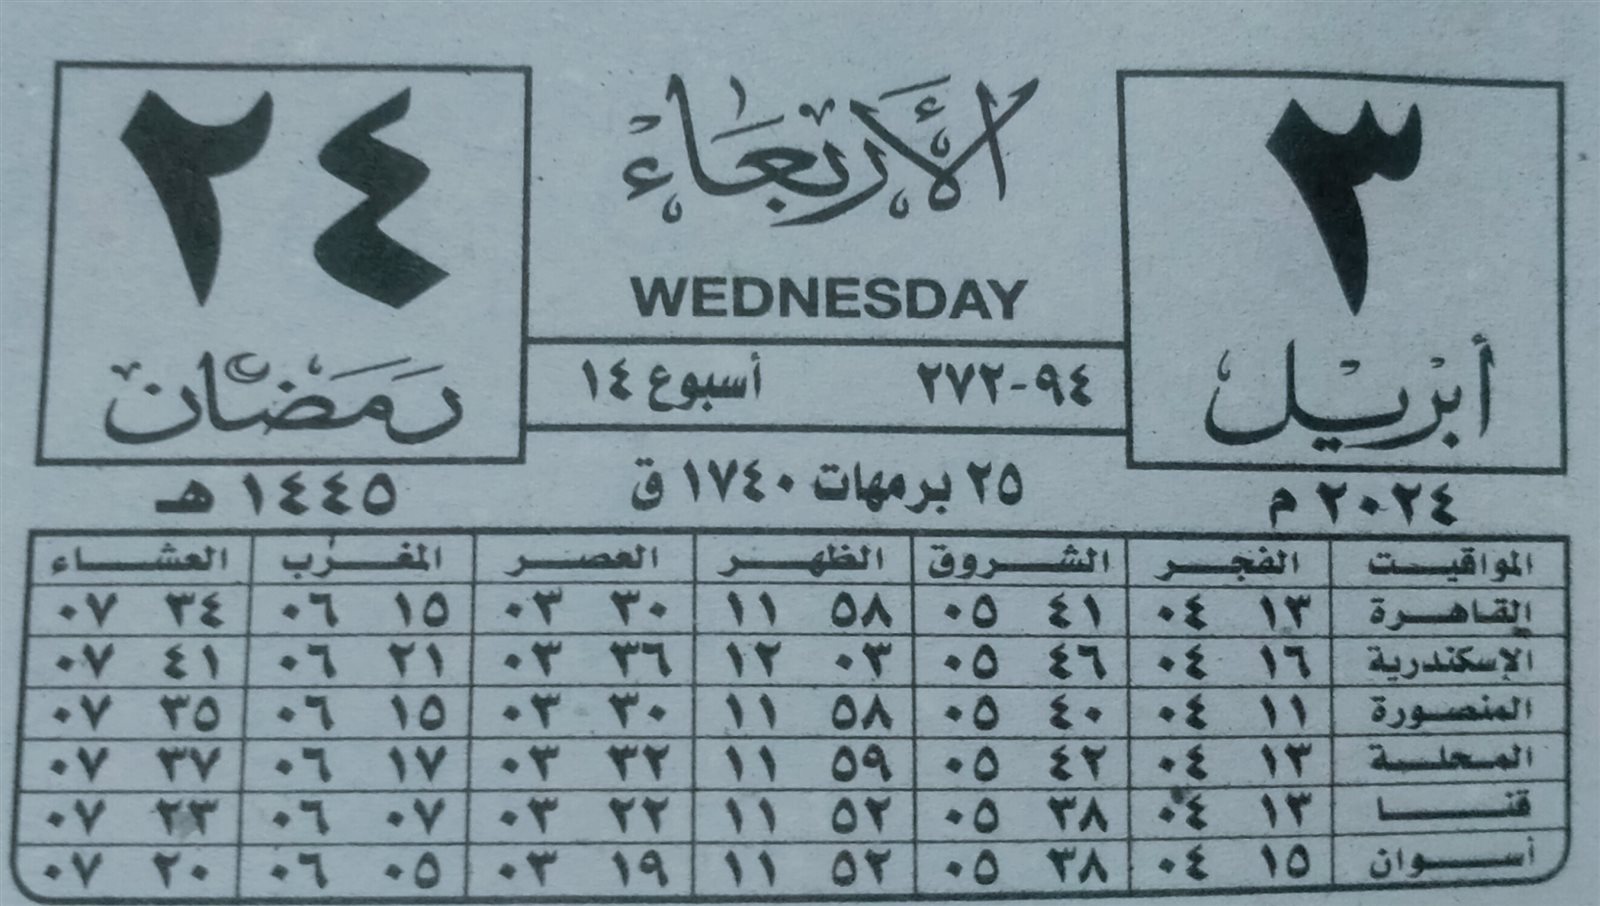 ٣
أبريل
٢٠٢٤ م
الأربعاء
WEDNESDAY
٩٤-٢٧٢ أسبوع ١٤
٢٥ برمهات ١٧٤٠ ق
٢٤
رمضان
١٤٤٥ هـ
المواقيت الفجر الشروق الظهر العصر المغرب العشاء
القاهرة ١٣ ٠٤ ٤١ ٠٥ ٥٨ ١١ ٣٠ ٠٣ ١٥ ٠٦ ٣٤ ٠٧
الإسكندرية ١٦ ٠٤ ٤٦ ٠٥ ٠٣ ١٢ ٣٦ ٠٣ ٢١ ٠٦ ٤١ ٠٧
المنصورة ١١ ٠٤ ٤٠ ٠٥ ٥٨ ١١ ٣٠ ٠٣ ١٥ ٠٦ ٣٥ ٠٧
المحلة ١٣ ٠٤ ٤٢ ٠٥ ٥٩ ١١ ٣٢ ٠٣ ١٧ ٠٦ ٣٧ ٠٧
قنا ١٣ ٠٤ ٣٨ ٠٥ ٥٢ ١١ ٢٢ ٠٣ ٠٧ ٠٦ ٢٣ ٠٧
أسوان ١٥ ٠٤ ٣٨ ٠٥ ٥٢ ١١ ١٩ ٠٣ ٠٥ ٠٦ ٢٠ ٠٧